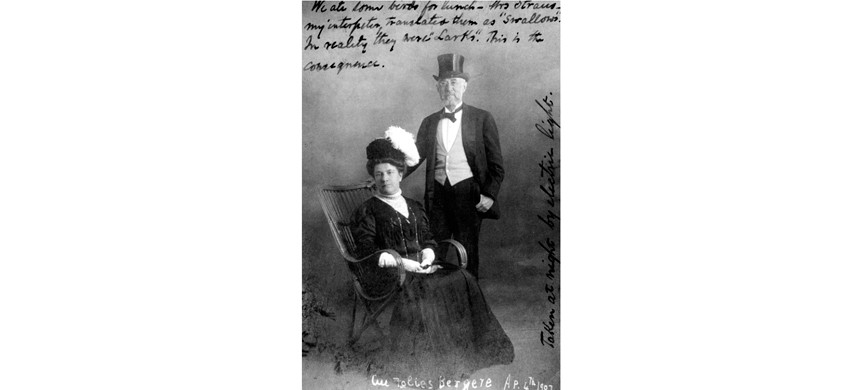 We ate some birds for lunch – Mrs Straus–
my interpreter, translated them as "Swallows".
In reality "they were" Larks". This is the
consequence.
Taken at night by electric light.
Au Folies Bergere Ap. 4th 1907